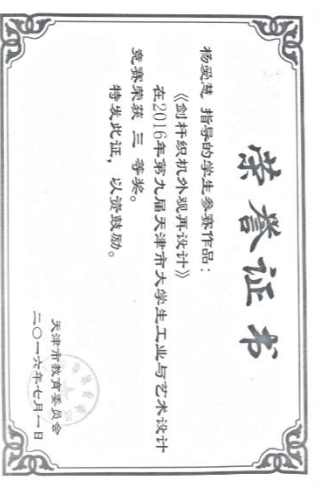 荣誉证书
杨爱慧 指导的学生参赛作品:
《剑杆织机外观再设计》
在2016年第九届天津市大学生工业与艺术设计
竞赛荣获 三 等奖。
特发此证,以资鼓励。
天津市教育委员会
二〇一六年七月一日